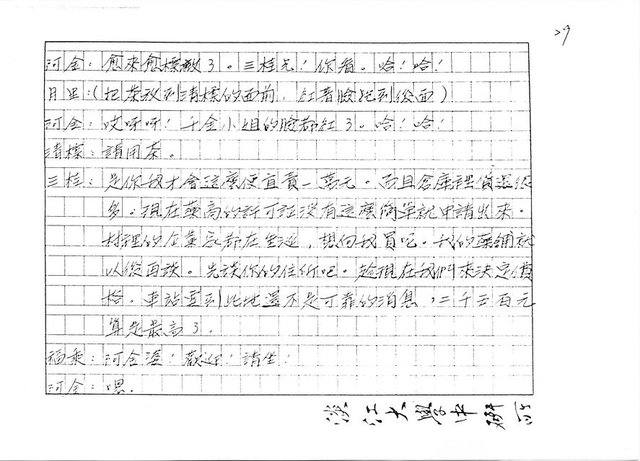 29
河金：愈來愈標緻了。三桂兄！你看。哈！哈！
月里：（把茶放到清標的面前，紅著臉跑到後面）
河金：哎呀呀！千金小姐的臉都紅了。哈！哈！
清標：請用茶。
三桂：是你我才會這麼便宜賣一萬元。而且倉庫裡貨還很
多。現在藥商的許可證沒有這麼簡單就申請出來。
村裡的企業家都在坐，想向我買吧。我的藥鋪就
以後再談。先談你的住所吧。趁現在我們來決定價
格。車站置到此地還不是可靠的消息，二千三百元
算是最高了。
福乘：河金澀！歡迎！請坐！
河金：嗯。
淡江大學中研所